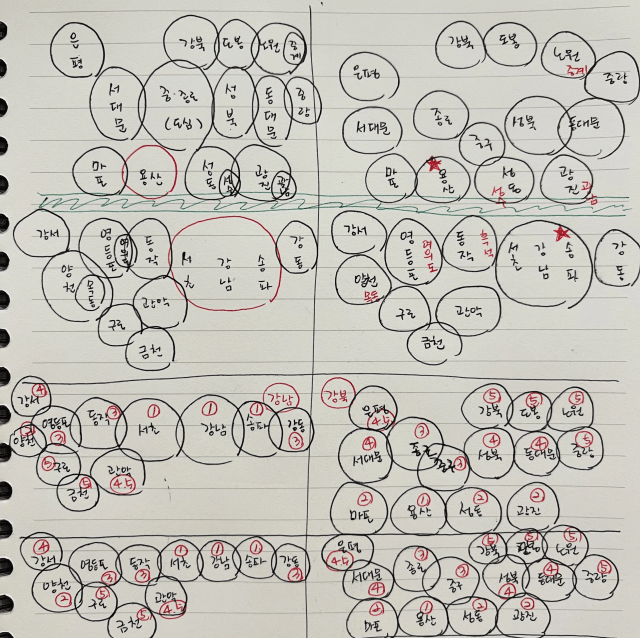 은평
강북 도봉 노원 중계
서대문 중·종로 (도심) 성북 동대문 중랑
마포 용산 성동 성수 광진 광장
강서 영등포 여의도 동작 서초 강남 송파 강동
양천 목동
구로 관악
금천
강북 도봉 노원 중계
은평 중랑
서대문 종로 중구 성북 동대문
마포 용산 성동 성수 광진 광장
강서 영등포 여의도 동작 흑석 서초 강남 송파 강동
양천 목동
구로 관악
금천
강남
강서 ④
양천 영등포 동작 ③ 서초 ① 강남 ① 송파 ① 강동 ③
구로 ⑤ 관악 4.5
금천 ⑤
강북
은평 4.5 강북 ⑤ 도봉 ⑤ 노원 ⑤
서대문 ④ 종로 ③ 중구 ③ 성북 ④ 동대문 ④ 중랑 ⑤
마포 ② 용산 ① 성동 ② 광진 ②
강서 ④ 영등포 ③ 동작 ③ 서초 ① 강남 ① 송파 ① 강동
양천 ② 구로 ⑤ 관악 4.5
금천 ⑤
은평 4.5 강북 ⑤ ⑤ 노원 ⑤
서대문 ④ 종로 ③ 중구 ③ 성북 ④ 동대문 ④ 중랑 ⑤
마포 ② 용산 ① 성동 ② 광진 ②